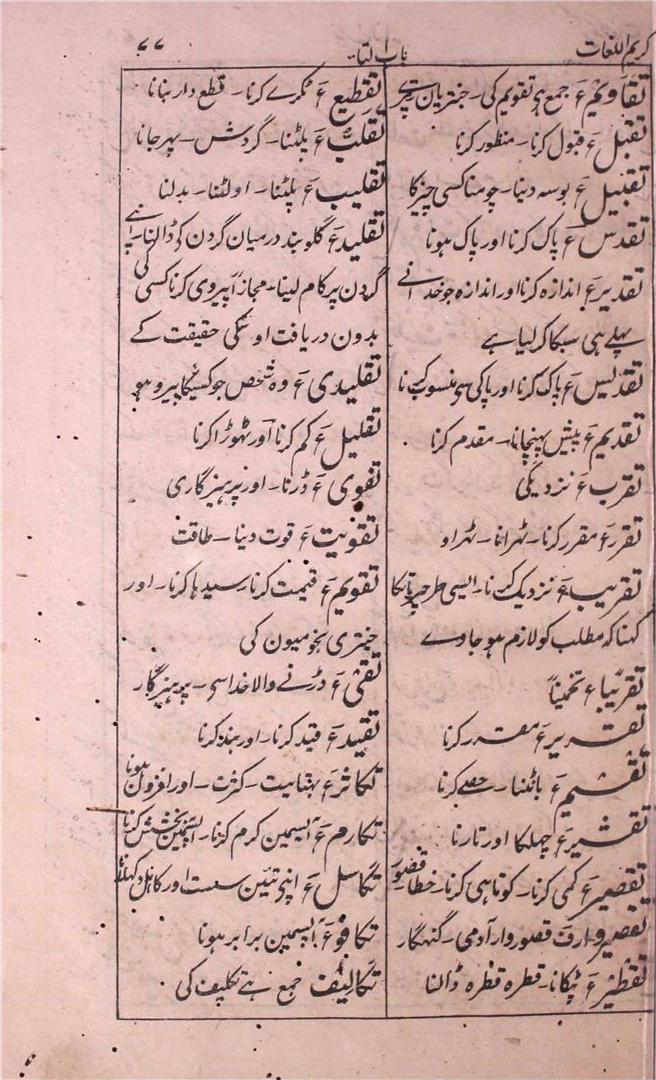 کریم اللغات
باب التاء
۷۷
تقاویم ء جمع ہی تقویم کی۔ جنتریان پترے
تقبل ء قبول کرنا۔ منظور کرنا
تقبیل ء بوسہ دینا۔ چومنا کسی چیز کا
تقدس ء پاک کرنا اور پاک ہونا
تقدیر ء اندازہ کرنا اور اندازہ جو خدا نے
پہلے ہی سبکا کر لیا ہے
تقدیس ء پاک کرنا اور پاکی سی منسوب کرنا
تقدیم ء پیش پہنچانا۔ مقدم کرنا
تقرب ء نزدیکی
تقرر ء مقرر کرنا۔ ٹہرانا۔ ٹہراو
تقریب ء نزدیک کرنا۔ ایسی طرح پر بات کا
کہنا کہ مطلب کو لازم ہو جاوے
تقریباً ء تخمیناً
تقریر ء مقرر کرنا
تقسیم ء بانٹنا۔ حصے کرنا
تقشیر ء چہلکا اوتارنا
تقصیر ء کمی کرنا۔ کوتاہی کرنا۔ خطا۔ قصور
تقصیروار ف قصوروار آدمی۔ گنہگار
تقطیر ء ٹپکانا۔ قطرہ قطرہ ڈالنا
تقطیع ء ٹکرے کرنا۔ قطع دار بنانا
تقلب ء پلٹنا۔ گردش۔ پہر جانا
تقلیب ء پلٹنا۔ اولٹنا۔ بدلنا
تقلید ء گلوبند درمیان گردن کو ڈالنا۔ اپنے
گردن پر کام لینا۔ مجازاً پیروی کرنا کسی کی
بدون دریافت اوسکی حقیقت کے
تقلیدی ء وہ شخص جو کسیکا پیرو ہو
تقلیل ء کم کرنا اور تہوڑا کرنا
تقوی ء ڈرنا۔ اور پرہیزگاری
تقویت ء قوت دینا۔ طاقت
تقویم ء قیمت کرنا۔ سیدہا کرنا۔ اور
جنتری نجومیون کی
تقی ء ڈرنے والا خدا سی۔ پرہیزگار
تقیید ء قید کرنا۔ اور بند کرنا
تکاثر ء بہتایت۔ کثرت۔ اور افزون ہونا
تکارم ء آپسمین کرم کرنا۔ آپسمین بخشش کرنا
تکاسل ء اپنی تئین سست اور کاہل
تکافو ء آپسمین برابر ہونا
تکالیف جمع ہے تکلیف کی